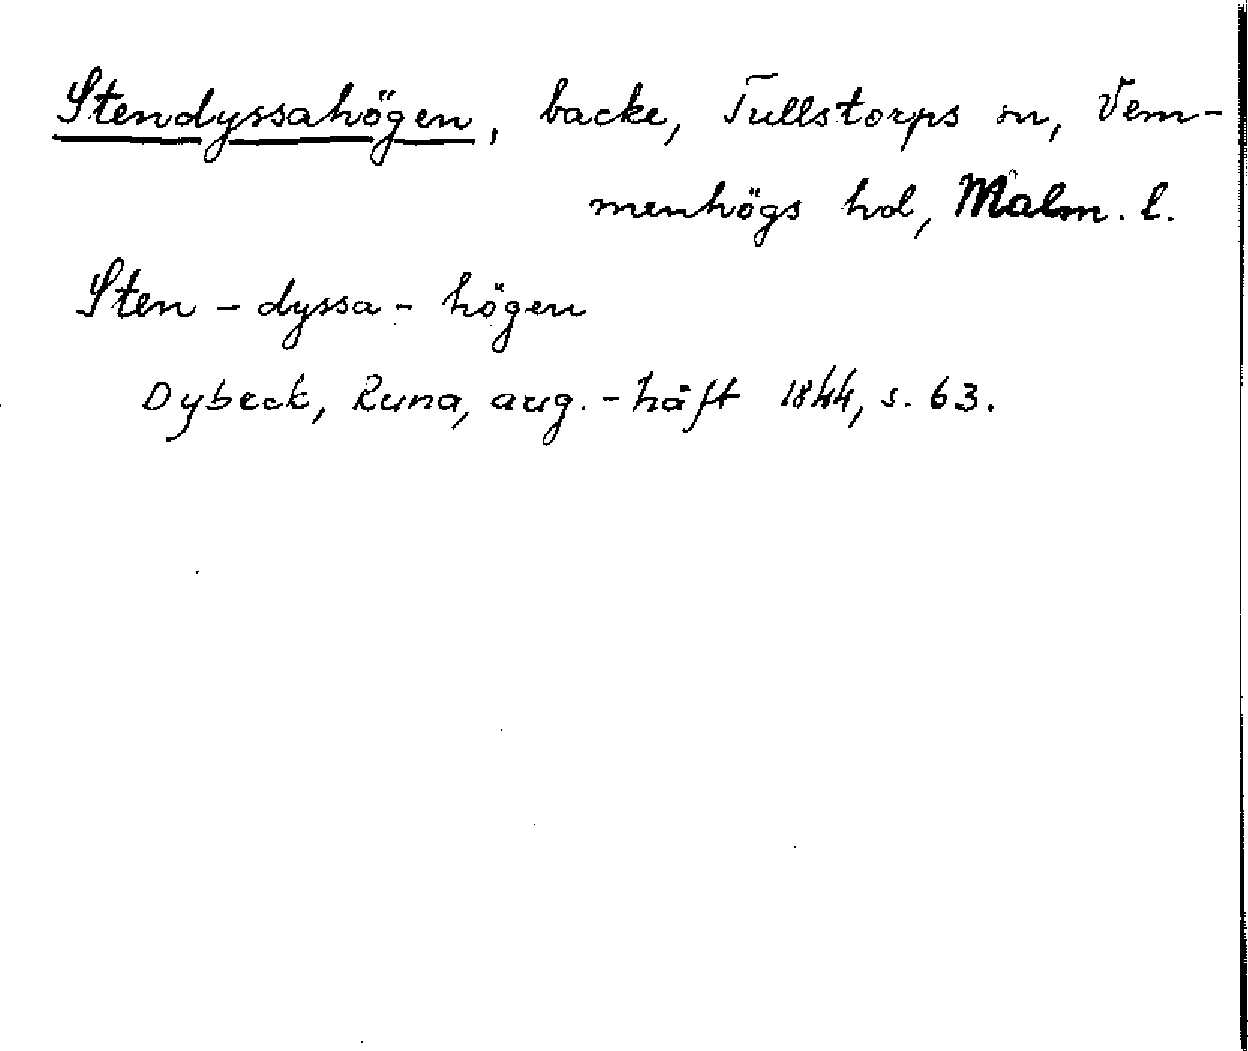 Stendyssahögen, backe, Tullstorps sn, Vem-
menhögs hd, Malm. l.
Sten - dyssa - högen
Dybeck, Runa, aug. - häft 1844, s. 63.